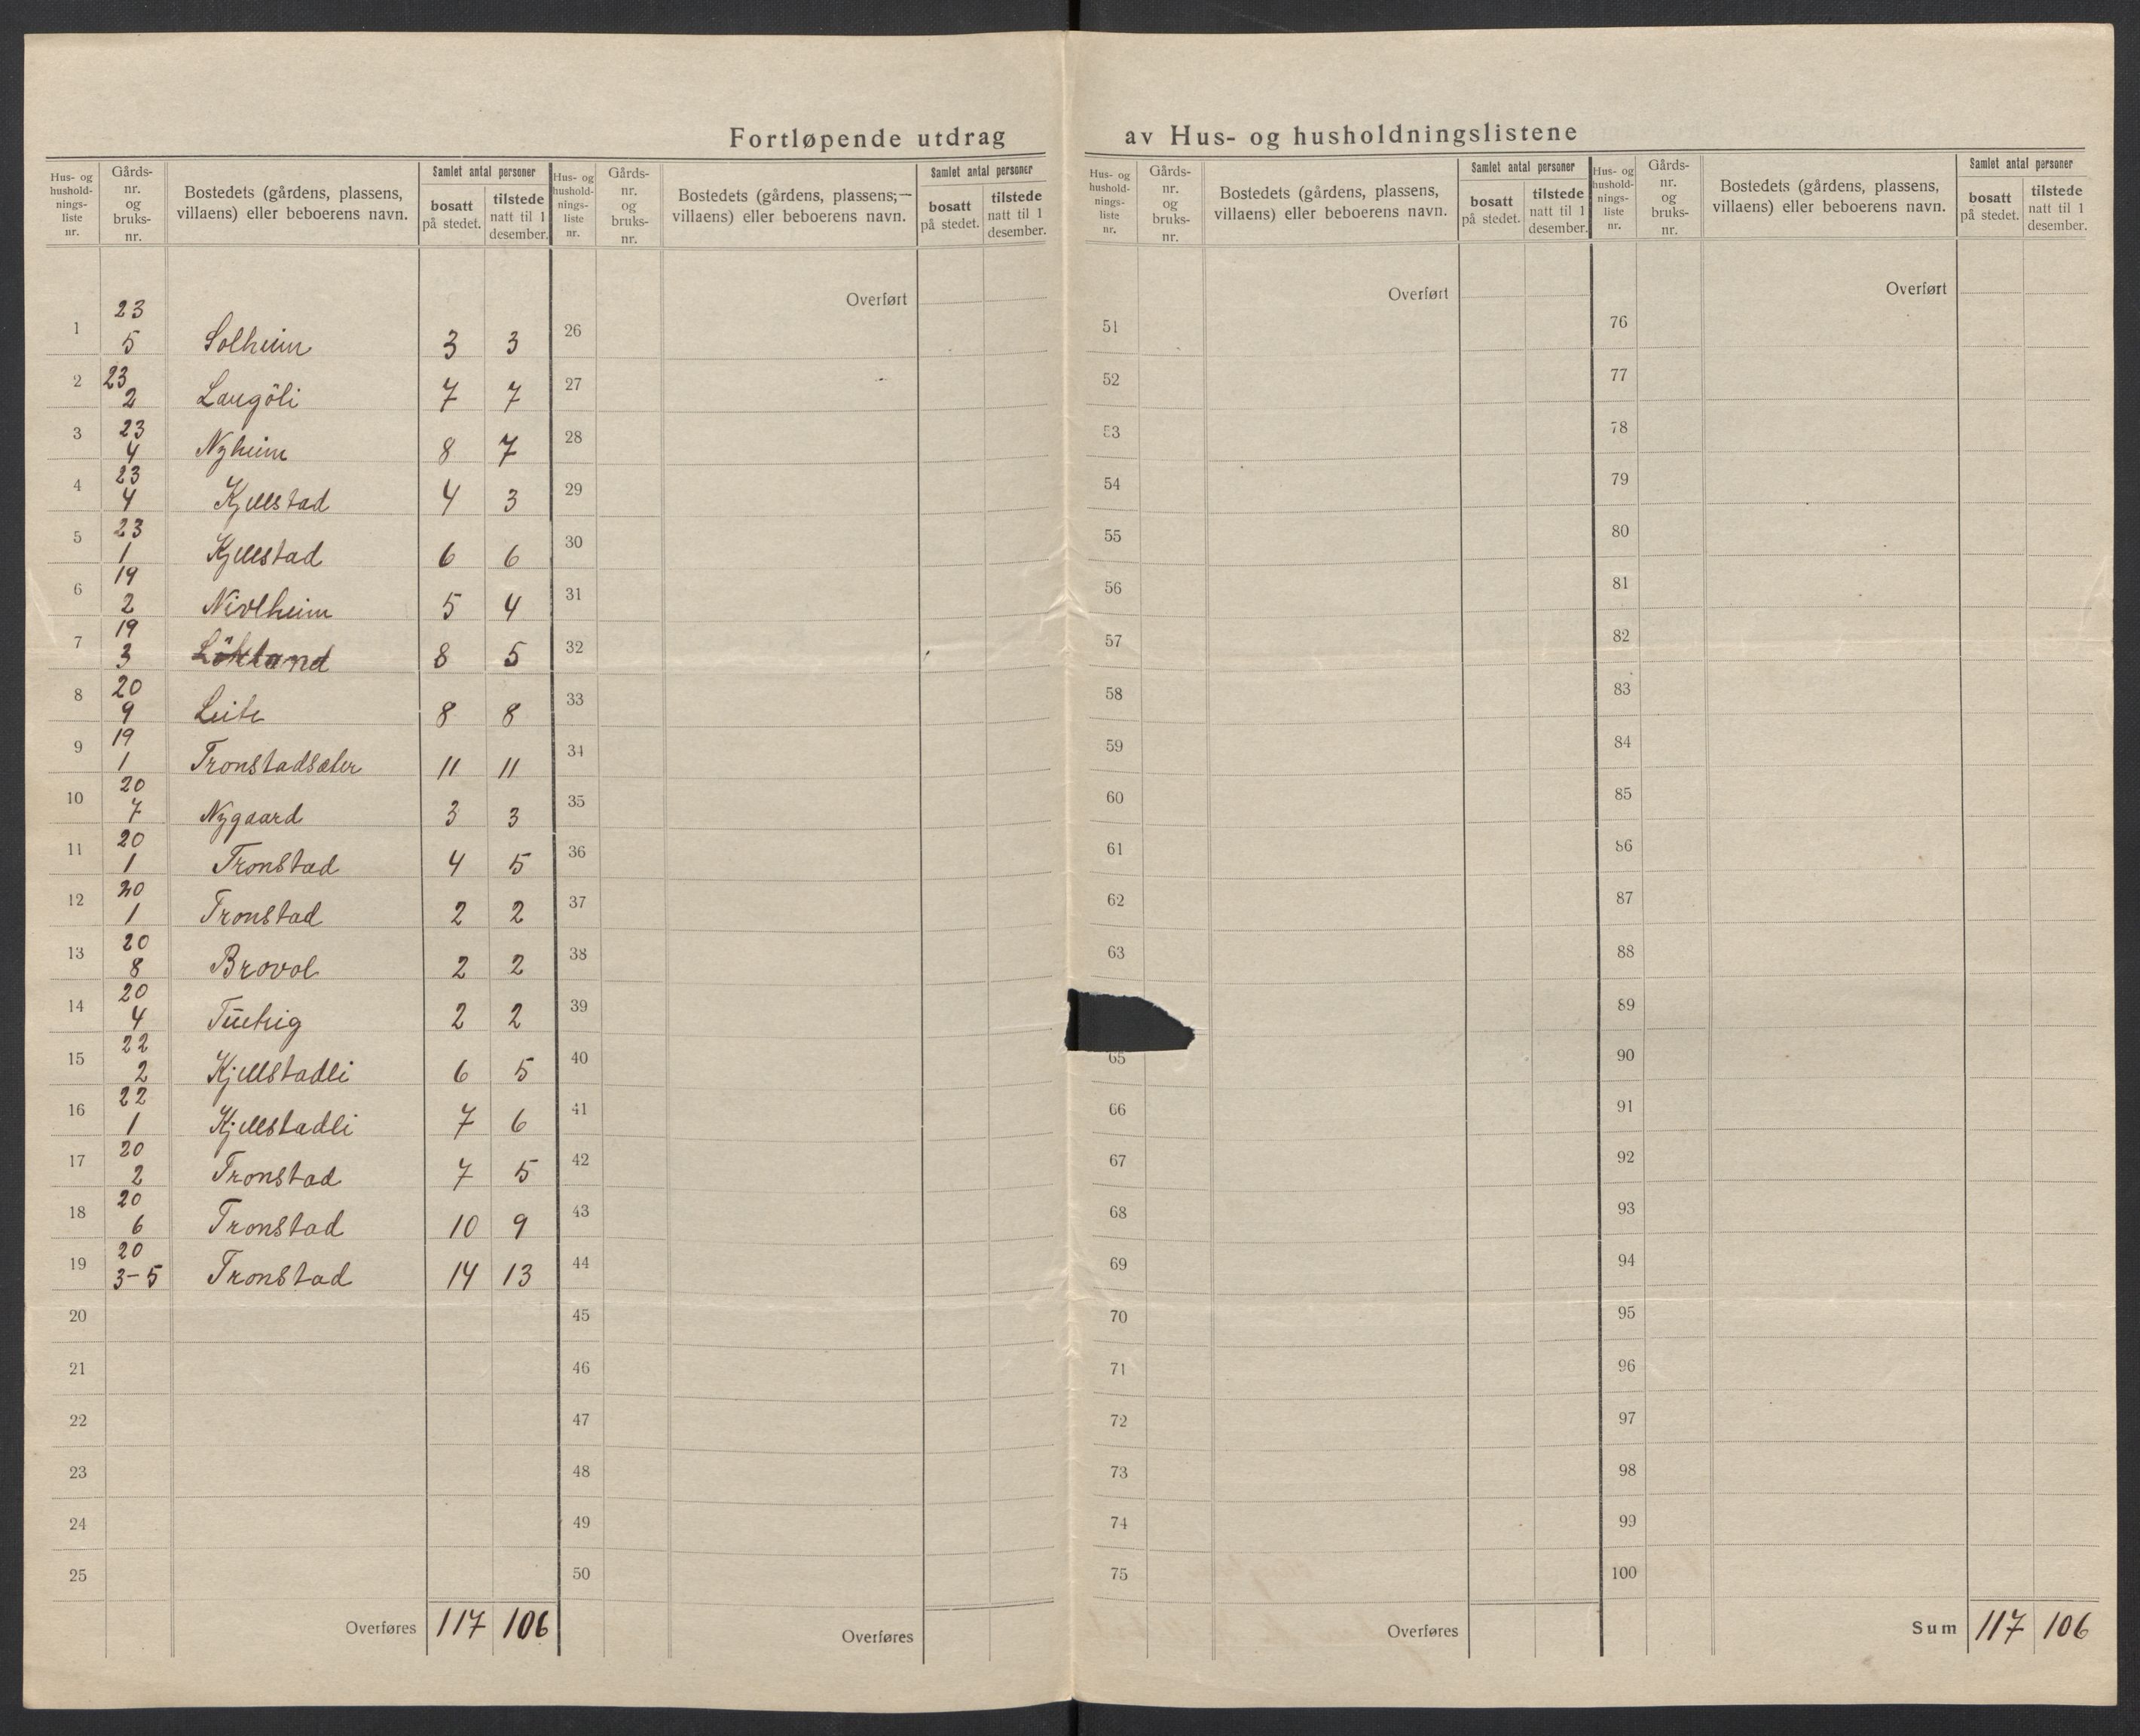 Fortløpende utdrag av Hus- og husholdningslistene
Hus- og hushold- nings- liste nr. Gårds- nr. og bruks- nr. Bostedets (gårdens, plassens, villaens) eller beboerens navn. Samlet antal personer bosatt på stedet. tilstede natt til 1 desember.
Hus- og hushold- nings- liste nr. Gårds- nr. og bruks- nr. Bostedets (gårdens, plassens, villaens) eller beboerens navn. Samlet antal personer bosatt på stedet. tilstede natt til 1 desember.
Hus- og hushold- nings- liste nr. Gårds- nr. og bruks- nr. Bostedets (gårdens, plassens, villaens) eller beboerens navn. Samlet antal personer bosatt på stedet. tilstede natt til 1 desember.
Hus- og hushold- nings- liste nr. Gårds- nr. og bruks- nr. Bostedets (gårdens, plassens, villaens) eller beboerens navn. Samlet antal personer bosatt på stedet. tilstede natt til 1 desember.
1 23 5 Solheim 3 3
2 23 2 Laugöli 7 7
3 23 4 Nyheim 8 7
4 23 4 Kjellstad 4 3
5 23 1 Kjellstad 6 6
6 19 2 Nivlheim 5 4
7 19 3 Lökland 8 5
8 20 9 Leite 8 8
9 19 1 Tronstadsæter 11 11
10 20 7 Nygaard 3 3
11 20 1 Tronstad 4 5
12 20 1 Tronstad 2 2
13 20 8 Brovol 2 2
14 20 4 2 2
15 22 2 Kjellstadli 6 5
16 22 1 Kjellstadli 7 6
17 20 2 Tronstad 7 5
18 20 6 Tronstad 10 9
19 20 3-5 Tronstad 14 13
20
21
22
23
24
25
Overføres 117 106
Overført
26
27
28
29
30
31
32
33
34
35
36
37
38
39
40
41
42
43
44
45
46
47
48
49
50
Overføres
Overført
51
52
53
54
55
56
57
58
59
60
61
62
63
65
66
67
68
69
70
71
72
73
74
75
Overføres
Overført
76
77
78
79
80
81
82
83
84
85
86
87
88
89
90
91
92
93
94
95
96
97
98
99
100
Sum 117 106